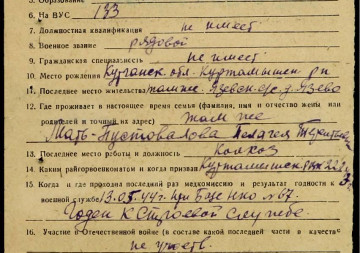 6. На ВУС 133
7. Должностная квалификация не имеет
8. Военное звание рядовой
9. Гражданская специальность не имеет
10. Место рождения Курганск. обл. Куртамышск. р-н
11. Последнее место жительства там же.
12. Где проживает в настоящее время семья (фамилия, имя и отчество жены или
родителей и точный адрес) там же
Мать - Пустовалова Пелагея
13. Последнее место работы и должность Колхоз
14. Каким райгорвоенкоматом и когда призван Куртамышск
15. Когда и где проходил последний раз медкомиссию и результат годности к
военной службе при
Годен к строевой службе
16. Участие в Отечественной войне (в составе какой последней части в качест
не участв.